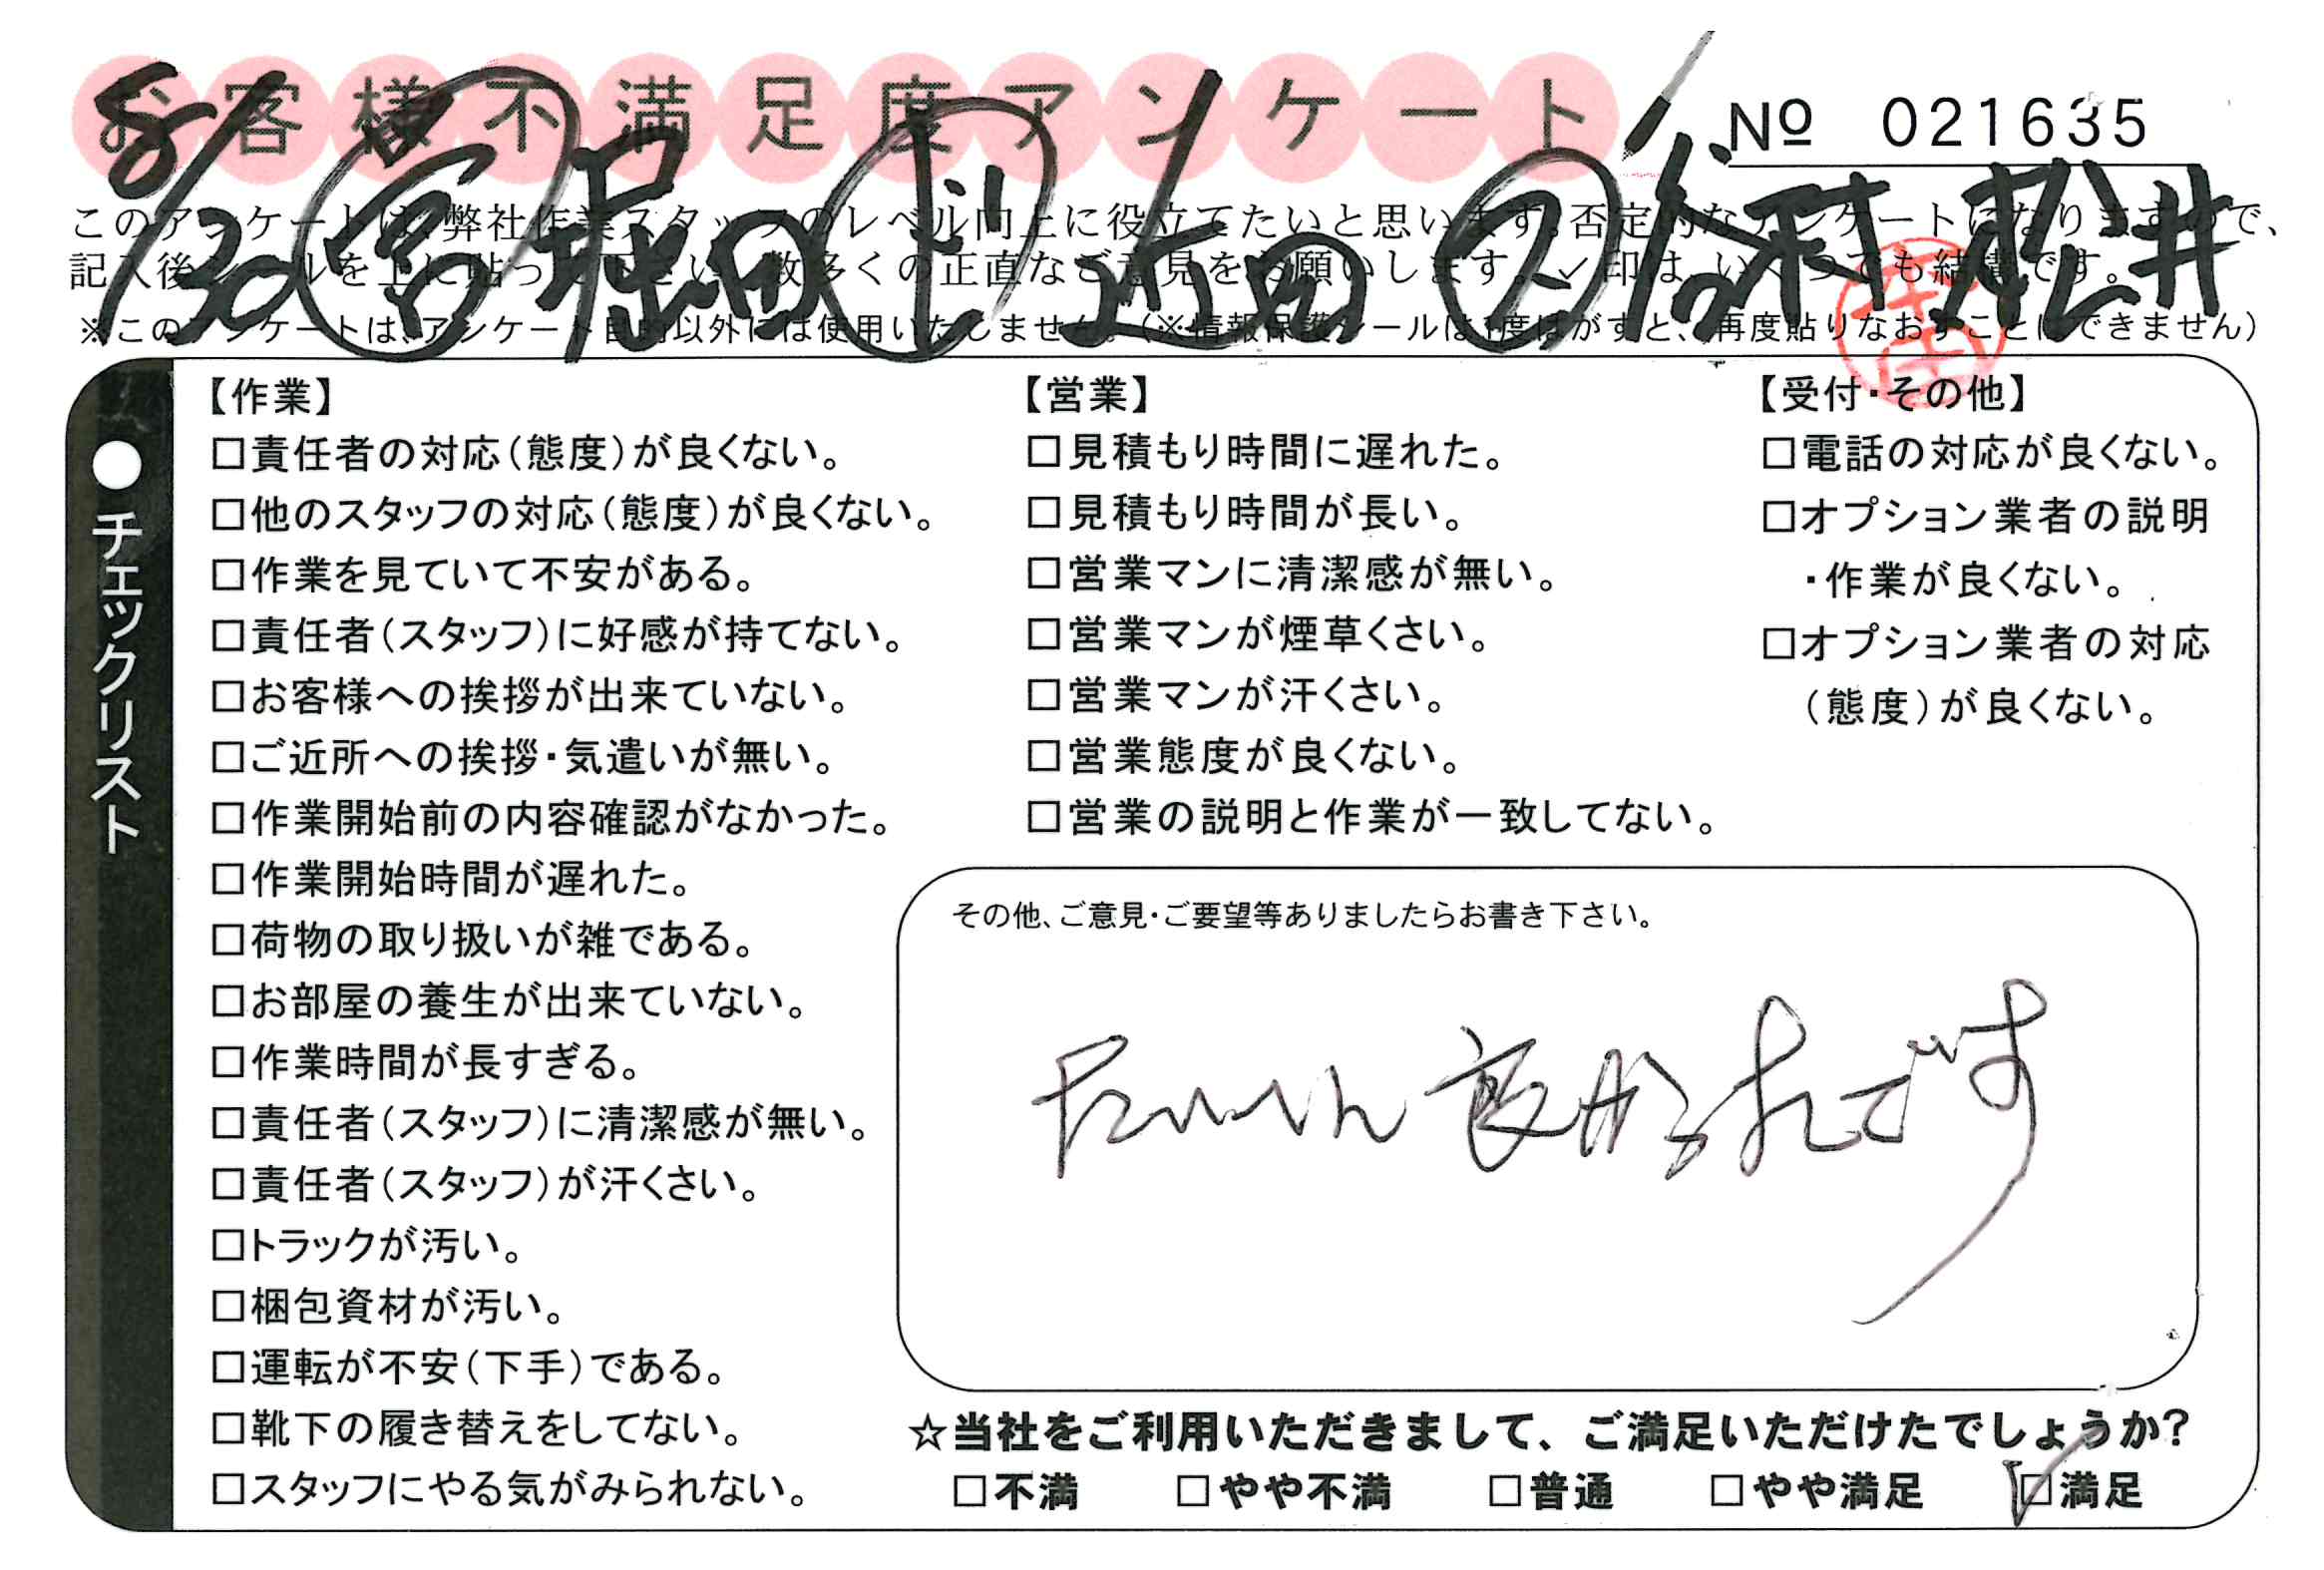 お客様不満足度アンケート
№ 021635
8/30 営 堀田 ド 近田 ② 谷村 松井
このアンケートは、弊社作業スタッフのレベル向上に役立てたいと思います。否定的なアンケートになりますので、
記入後シールを上に貼って下さい。数多くの正直なご意見をお願いします。✓印は、いくつでも結構です。
※このアンケートは、アンケート目的以外には使用いたしません。（※情報保護シールは1度はがすと、再度貼りなおすことはできません）
●チェックリスト
【作業】
□責任者の対応（態度）が良くない。
□他のスタッフの対応（態度）が良くない。
□作業を見ていて不安がある。
□責任者（スタッフ）に好感が持てない。
□お客様への挨拶が出来ていない。
□ご近所への挨拶・気遣いが無い。
□作業開始前の内容確認がなかった。
□作業開始時間が遅れた。
□荷物の取り扱いが雑である。
□お部屋の養生が出来ていない。
□作業時間が長すぎる。
□責任者（スタッフ）に清潔感が無い。
□責任者（スタッフ）が汗くさい。
□トラックが汚い。
□梱包資材が汚い。
□運転が不安（下手）である。
□靴下の履き替えをしてない。
□スタッフにやる気がみられない。
【営業】
□見積もり時間に遅れた。
□見積もり時間が長い。
□営業マンに清潔感が無い。
□営業マンが煙草くさい。
□営業マンが汗くさい。
□営業態度が良くない。
□営業の説明と作業が一致してない。
【受付・その他】
□電話の対応が良くない。
□オプション業者の説明
・作業が良くない。
□オプション業者の対応
（態度）が良くない。
その他、ご意見・ご要望等ありましたらお書き下さい。
たいへん良かったです
☆当社をご利用いただきまして、ご満足いただけたでしょうか？
□不満 □やや不満 □普通 □やや満足 ☑満足